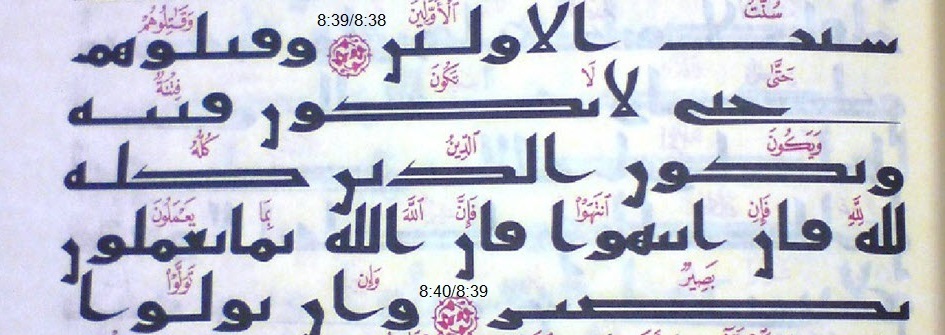 سُنَّتُ ٱلْأَوَّلِينَ 8:39/8:38 وَقَٰتِلُوهُمْ
سىىـ الاولىں وڡىلوهم
حَتَّىٰ لَا تَكُونَ فِتْنَةٌ
حىى لا ىكوں ڡىىه
وَيَكُونَ ٱلدِّينُ كُلُّهُ
وىكوں الدىں كله
لِلَّهِ فَإِنِ ٱنتَهَوْا۟ فَإِنَّ ٱللَّهَ بِمَا يَعْمَلُونَ
لله ڡاں اىىهوا ڡاں الله ىما ىعملوں
بَصِيرٌ 8:40/8:39 وَإِن تَوَلَّوْا۟
ىصىر واں ىولوا